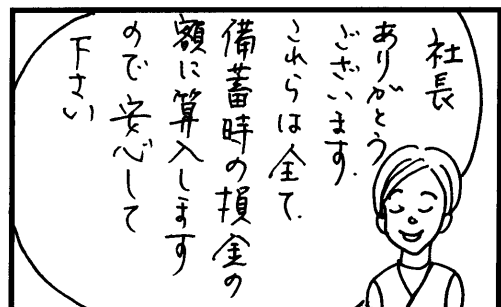 社長
ありがとう
ございます。
これらは全て、
備蓄時の損金の
額に算入します
ので安心して
下さい